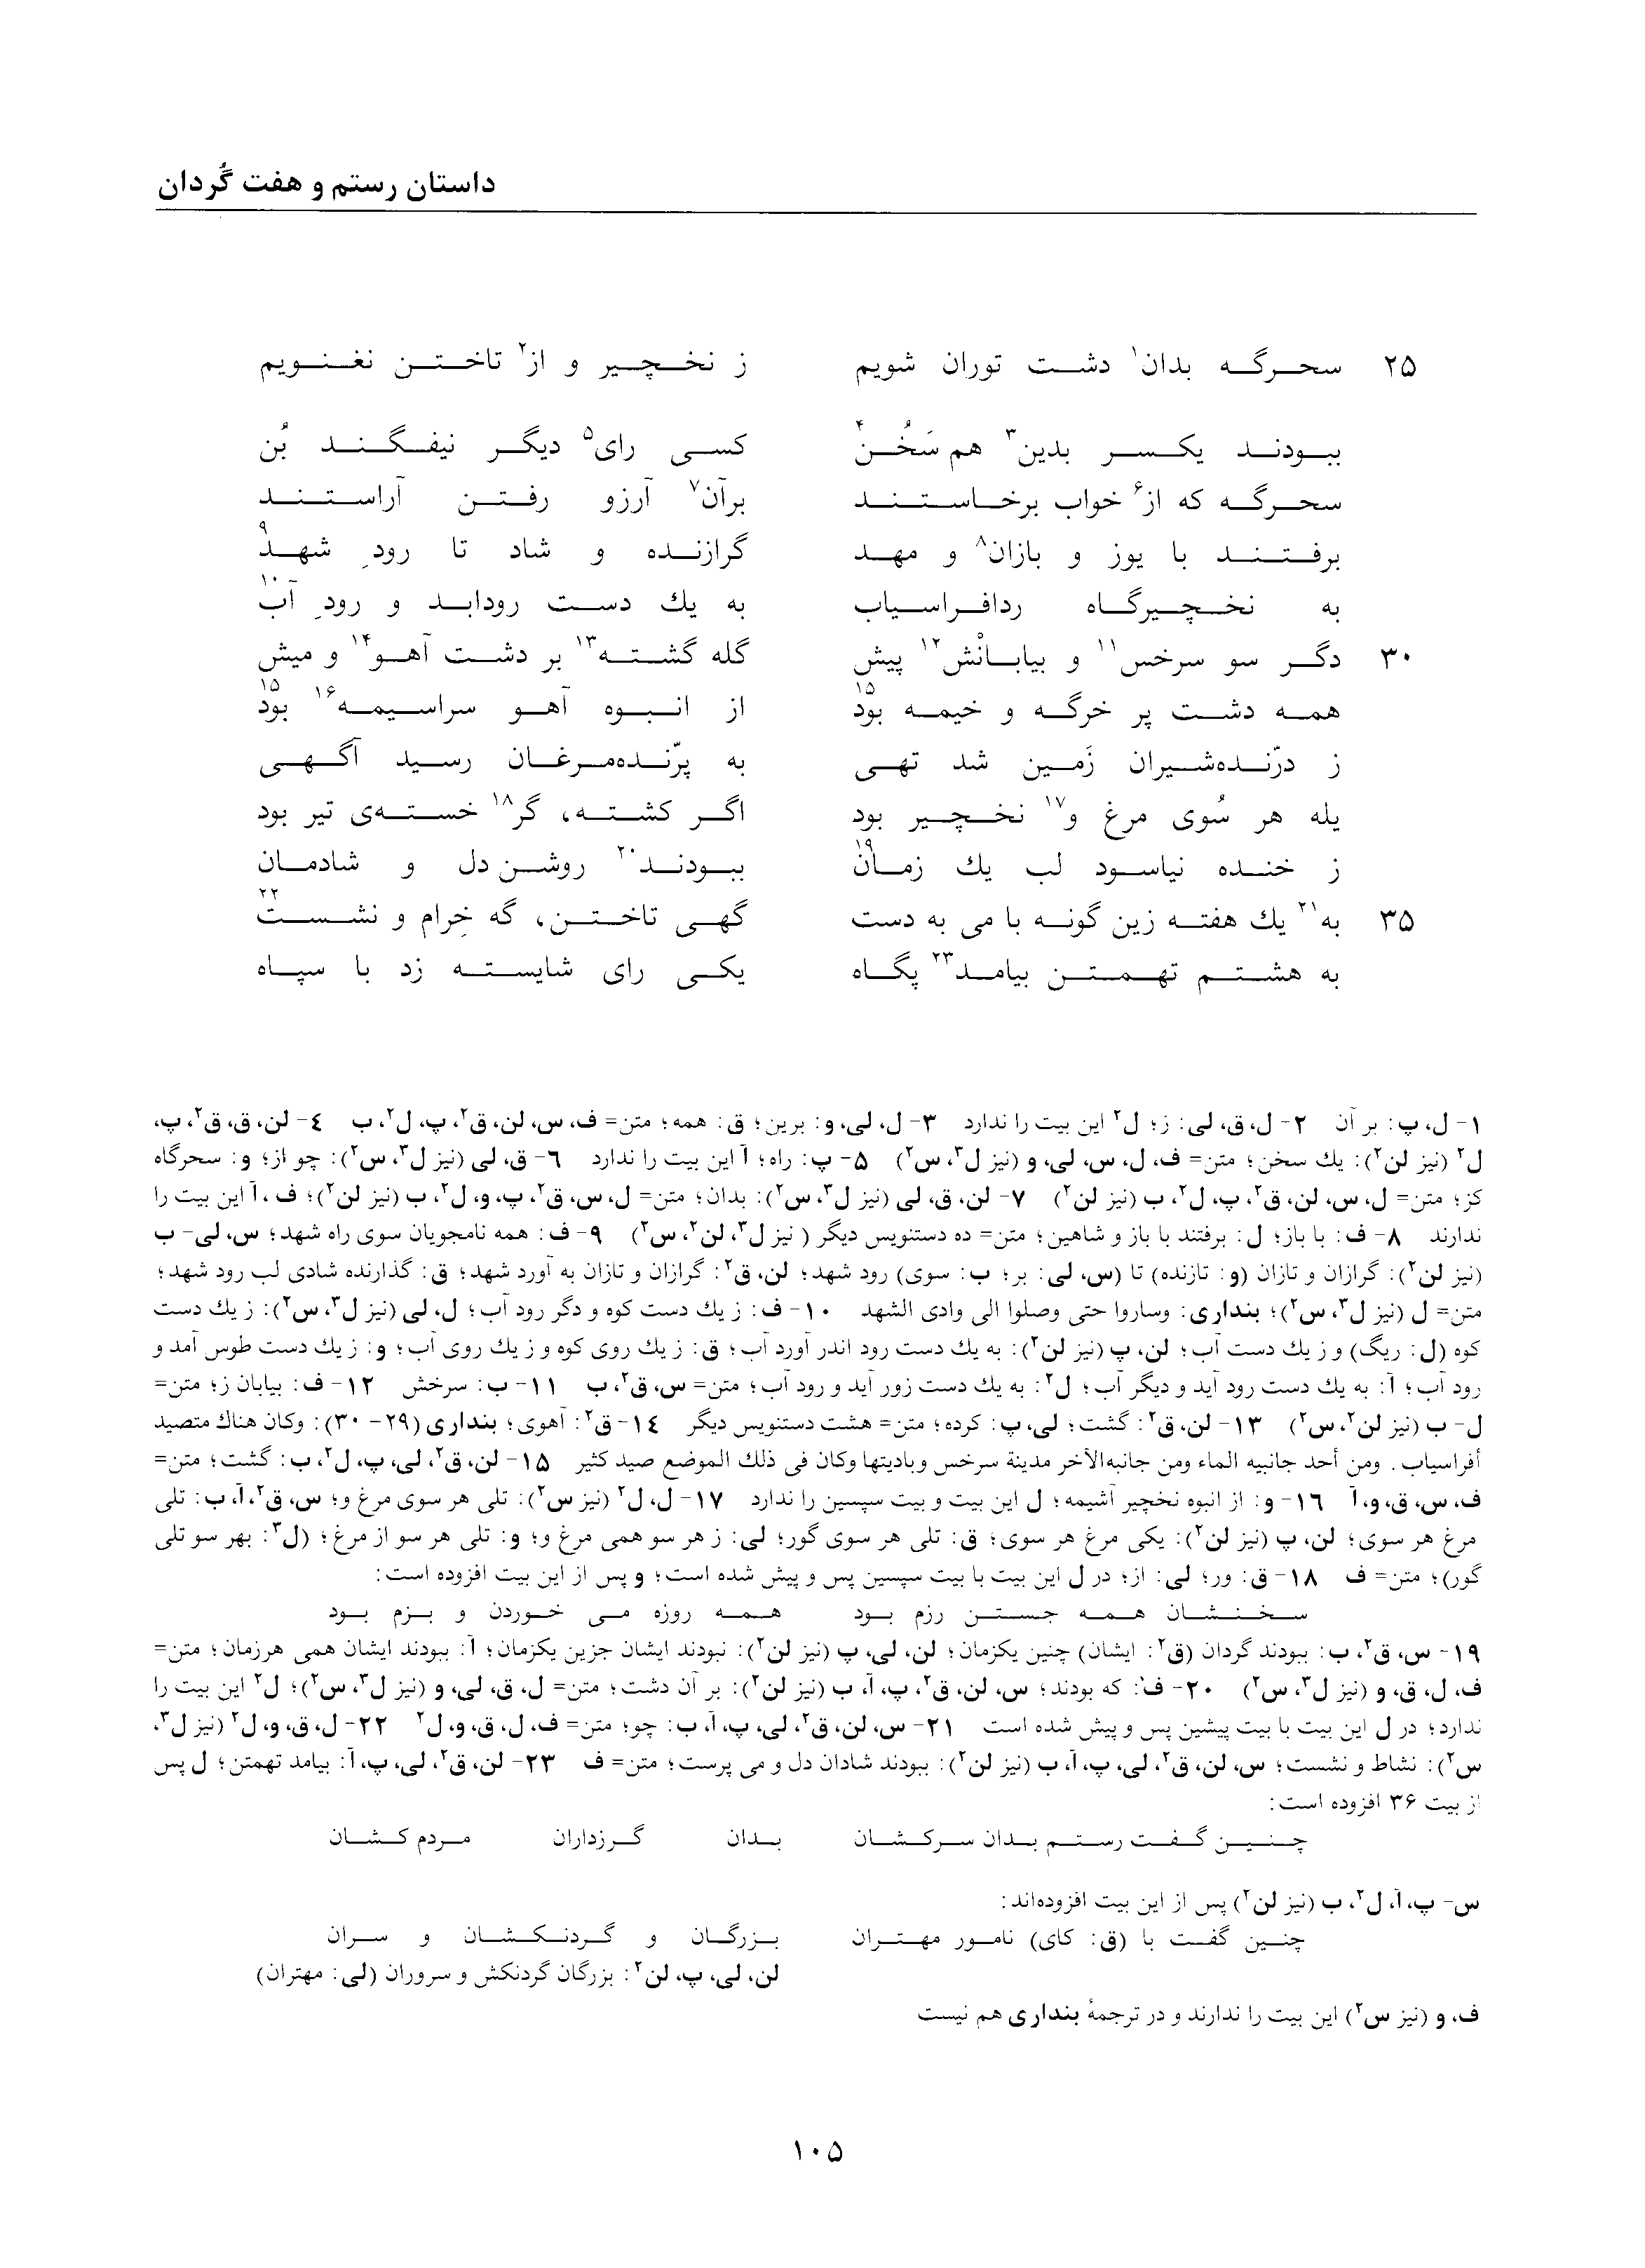 داستان رستم و هفت گُردان
۲۵ سحرگه بدان۱ دشت توران شویم ز نخچیر و از۲ تاختن نغنویم
ببودند یکسر بدین۳ هم سَخُن۴ کسی رای۵ دیگر نیفگند بُن
سحرگه که از۶ خواب برخاستند برآن۷ آرزو رفتن آراستند
برفتند با یوز و بازان۸ و مهد گرازنده و شاد تا رودِ شهد۹
به نخچیرگاه ردافراسیاب به یك دست رودابد و رودِ آب۱۰
۳۰ دگر سو سرخس۱۱ و بیابانْش۱۲ پیش گله گشته۱۳ بر دشت آهو۱۴ و میش
همه دشت پر خرگه و خیمه بود۱۵ از انبوه آهو سراسیمه۱۶ بود۱۵
ز درّنده‌شیران زَمین شد تهی به پرّنده‌مرغان رسید آگهی
یله هر سُوی مرغ و۱۷ نخچیر بود اگر کشته، گر۱۸ خسته‌ی تیر بود
ز خنده نیاسود لب یك زمان۱۹ ببودند۲۰ روشن دل و شادمان
۳۵ به۲۱ یك هفته زین گونه با می به دست گهی تاختن، گه خِرام و نشست۲۲
به هشتم تهمتن بیامد۲۳ پگاه یکی رای شایسته زد با سپاه
۱- ل، پ: بر آن ۲- ل، ق، لی: ز؛ ل۲ این بیت را ندارد ۳- ل، لی، و: برین؛ ق: همه؛ متن= ف، س، لن، ق۲، پ، ل۲، ب ٤- لن، ق، ق۲، پ،
ل۲ (نیز لن۲): یك سخن؛ متن= ف، ل، س، لی، و (نیز ل۳، س۲) ۵- پ: راه؛ آ این بیت را ندارد ۶- ق، لی (نیز ل۳، س۲): چو از؛ و: سحرگاه
کز؛ متن= ل، س، لن، ق۲، پ، ل۲، ب (نیز لن۲) ۷- لن، ق، لی (نیز ل۳، س۲): بدان؛ متن= ل، س، ق۲، پ، و، ل۲، ب (نیز لن۲)؛ ف، آ این بیت را
ندارند ۸- ف: با باز؛ ل: برفتند با باز و شاهین؛ متن= ده دستنویس دیگر ( نیز ل۳، لن۲، س۲) ۹- ف: همه نامجویان سوی راه شهد؛ س، لی- ب
(نیز لن۲): گرازان و تازان (و: تازنده) تا (س، لی: بر؛ ب: سوی) رود شهد؛ لن، ق۲: گرازان و تازان به آورد شهد؛ ق: گذارنده شادی لب رود شهد؛
متن= ل (نیز ل۳، س۲)؛ بنداری: وساروا حتی وصلوا الی وادی الشهد ۱۰- ف: ز یك دست کوه و دگر رود آب؛ ل، لی (نیز ل۳، س۲): ز یك دست
کوه (ل: ریگ) و ز یك دست آب؛ لن، پ (نیز لن۲): به یك دست رود اندر آورد آب؛ ق: ز یك روی کوه و ز یك روی آب؛ و: ز یك دست طوس آمد و
رود آب؛ آ: به یك دست رود آید و دیگر آب؛ ل۲: به یك دست زور آید و رود آب؛ متن= س، ق۲، ب ۱۱- ب: سرخش ۱۲- ف: بیابان ز؛ متن=
ل- ب (نیز لن۲، س۲) ۱۳- لن، ق۲: گشت؛ لی، پ: کرده؛ متن= هشت دستنویس دیگر ۱٤- ق۲: آهوی؛ بنداری (۲۹- ۳۰): وکان هناك متصید
أفراسیاب. ومن أحد جانبیه الماء ومن جانبه‌الأخر مدینة سرخس وبادیتها وکان فی ذلك الموضع صید کثیر ۱۵- لن، ق۲، لی، پ، ل۲، ب: گشت؛ متن=
ف، س، ق، و، آ ۱۶- و: از انبوه نخچیر آشیمه؛ ل این بیت و بیت سپسین را ندارد ۱۷- ل، ل۲ (نیز س۲): تلی هر سوی مرغ و؛ س، ق۲، آ، ب: تلی
مرغ هر سوی؛ لن، پ (نیز لن۲): یکی مرغ هر سوی؛ ق: تلی هر سوی گور؛ لی: ز هر سو همی مرغ و؛ و: تلی هر سو از مرغ؛ (ل۳: بهر سو تلی
گور)؛ متن= ف ۱۸- ق: ور؛ لی: از؛ در ل این بیت با بیت سپسین پس و پیش شده است؛ و پس از این بیت افزوده است:
سخنشان همه جستن رزم بود همه روزه می خوردن و بزم بود
۱۹- س، ق۲، ب: ببودند گردان (ق۲: ایشان) چنین یکزمان؛ لن، لی، پ (نیز لن۲): نبودند ایشان جزین یکزمان؛ آ: ببودند ایشان همی هرزمان؛ متن=
ف، ل، ق، و (نیز ل۳، س۲) ۲۰- ف: که بودند؛ س، لن، ق۲، پ، آ، ب (نیز لن۲): بر آن دشت؛ متن= ل، ق، لی، و (نیز ل۳، س۲)؛ ل۲ این بیت را
ندارد؛ در ل این بیت با بیت پیشین پس و پیش شده است ۲۱- س، لن، ق۲، لی، پ، آ، ب: چو؛ متن= ف، ل، ق، و، ل۲ ۲۲- ل، ق، و، ل۲ (نیز ل۳،
س۲): نشاط و نشست؛ س، لن، ق۲، لی، پ، آ، ب (نیز لن۲): ببودند شادان دل و می پرست؛ متن= ف ۲۳- لن، ق۲، لی، پ، آ: بیامد تهمتن؛ ل پس
از بیت ۳۶ افزوده است:
چنین گفت رستم بدان سرکشان بدان گرزداران مردم کشان
س- پ، آ، ل۲، ب (نیز لن۲) پس از این بیت افزوده‌اند:
چنین گفت با (ق: کای) نامور مهتران بزرگان و گردنکشان و سران
لن، لی، پ، لن۲: بزرگان گردنکش و سروران (لی: مهتران)
ف، و (نیز س۲) این بیت را ندارند و در ترجمهٔ بنداری هم نیست
۱۰۵